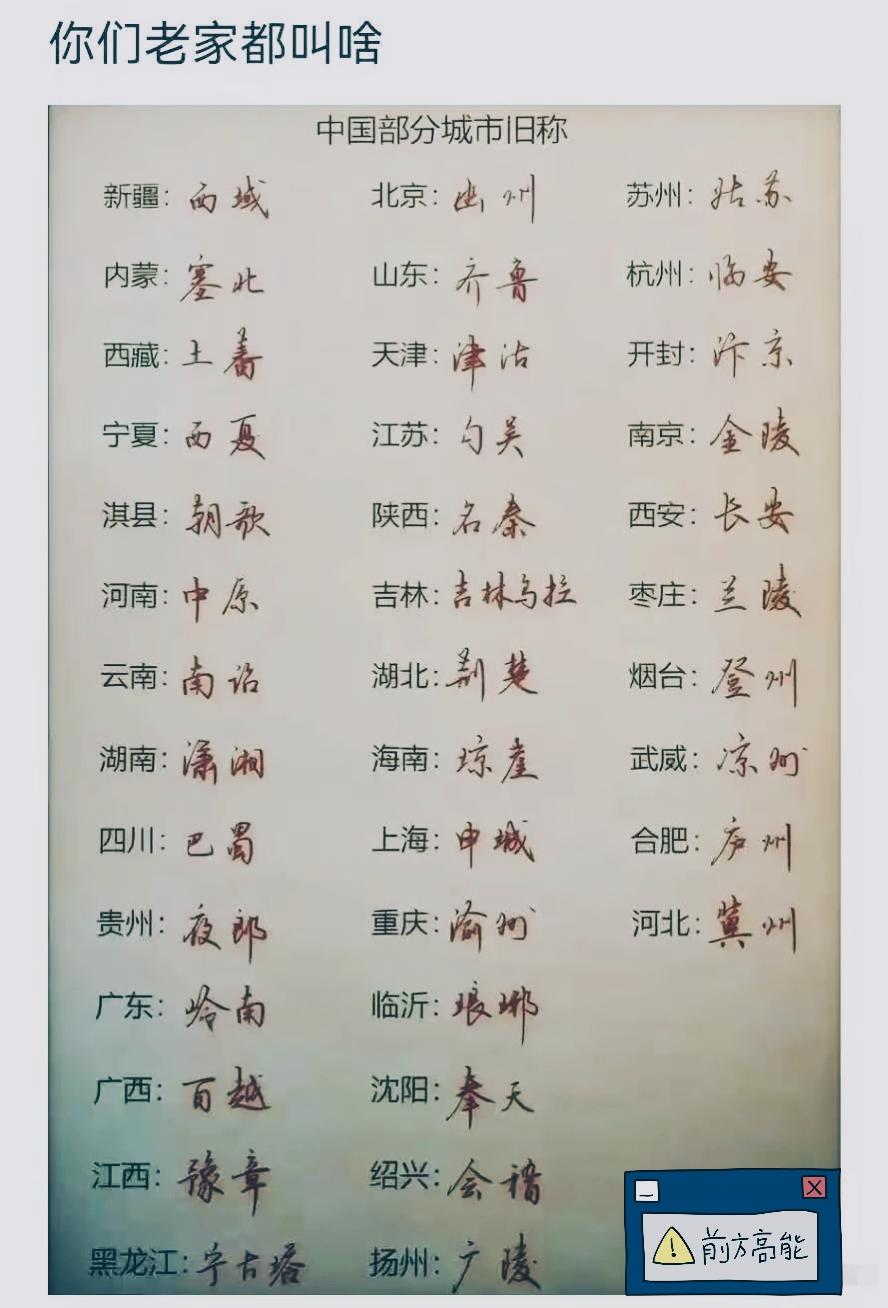 你们老家都叫啥
中国部分城市旧称
新疆：西域 北京：幽州 苏州：姑苏
内蒙：塞北 山东：齐鲁 杭州：临安
西藏：土蕃 天津：津沽 开封：汴京
宁夏：西夏 江苏：勾吴 南京：金陵
淇县：朝歌 陕西：名秦 西安：长安
河南：中原 吉林：吉林乌拉 枣庄：兰陵
云南：南诏 湖北：荆楚 烟台：登州
湖南：潇湘 海南：琼崖 武威：凉州
四川：巴蜀 上海：申城 合肥：庐州
贵州：夜郎 重庆：渝州 河北：冀州
广东：岭南 临沂：琅琊
广西：百越 沈阳：奉天
江西：豫章 绍兴：会稽
黑龙江：宁古塔 扬州：广陵
前方高能